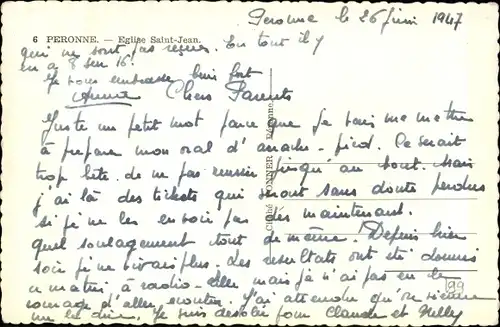 Peronne le 26 juin 1947
6 PERONNE. — Eglise Saint-Jean.
qui ne sont pas reçues. En tout il y
en a 8 sur 16.
Je vous embrasse bien fort
Chers Parents
Juste un petit mot parce que je vais me mettre
à préparer mon oral d'arrache-pied. Ce serait
trop bête de ne pas réussir jusqu'au bout. Mais
j'ai là des tickets qui seront sans doute perdus
si je ne les envoie pas dès maintenant.
quel soulagement tout de même! Depuis hier
soir je ne vivais plus. Des resultats ont été donnés
ce matin à radio- mais je n'ai pas eu le
courage d'aller écouter. J'ai attendu qu'on vienne
me le dire. Je suis désolée pour Claude et Nelly
99